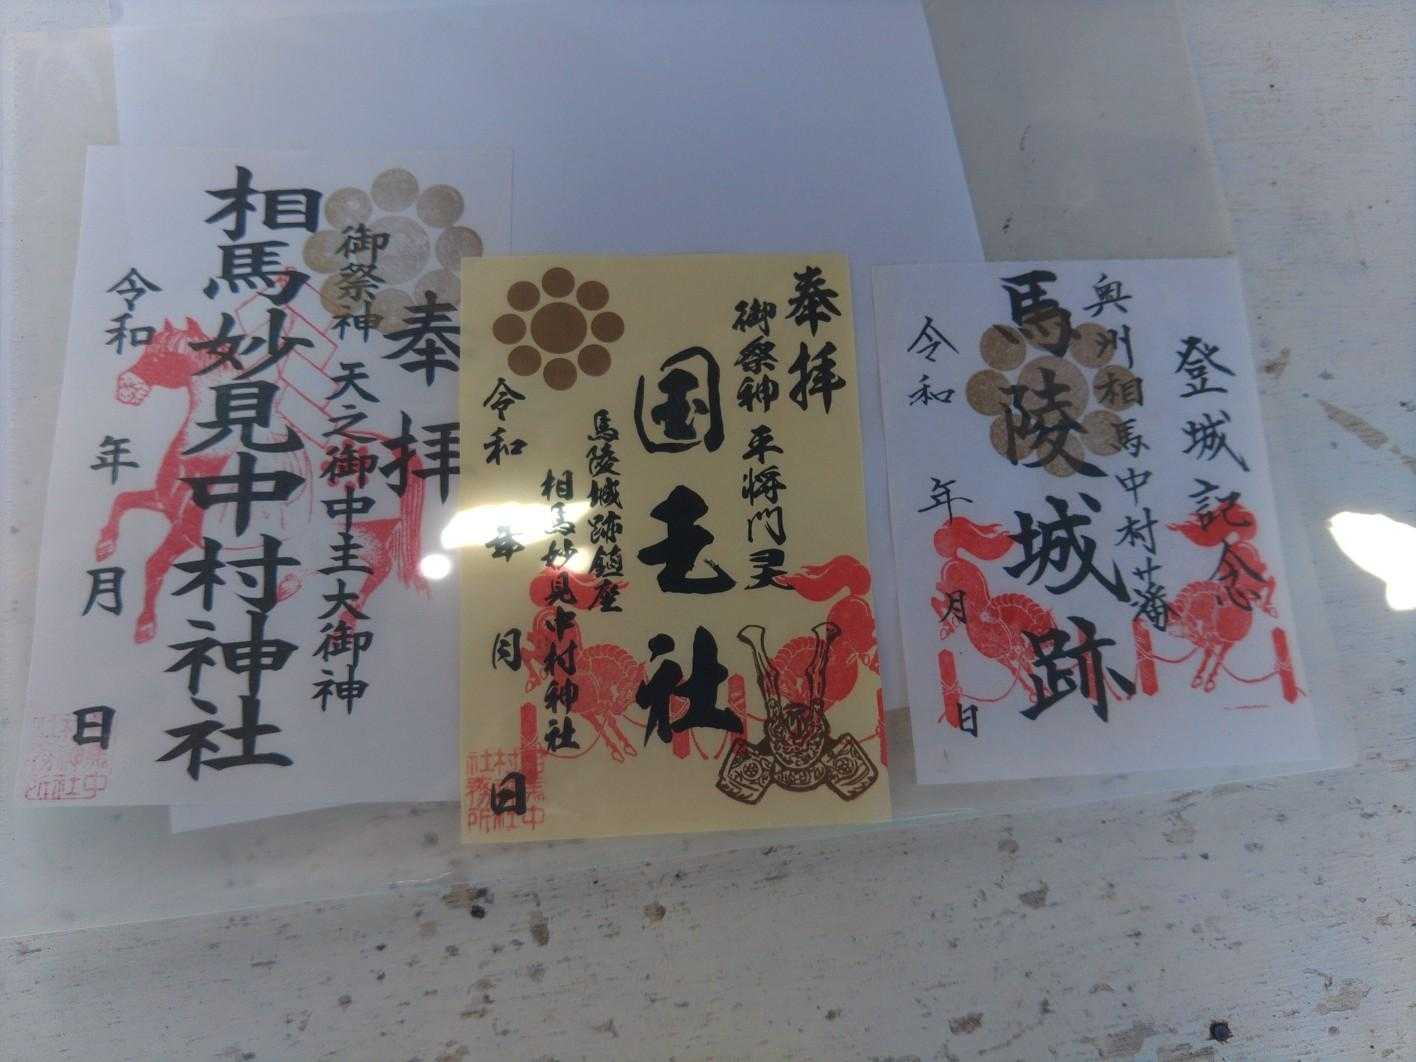 奉拝
御祭神 天之御中主大御神
相馬妙見中村神社
令和 年 月 日
奉拝
御祭神 平将門
国王社
馬陵城跡鎮座
相馬妙見中村神社
令和 年 月 日
社務所
登城記念
奥州相馬中村藩
馬陵城跡
令和 年 月 日